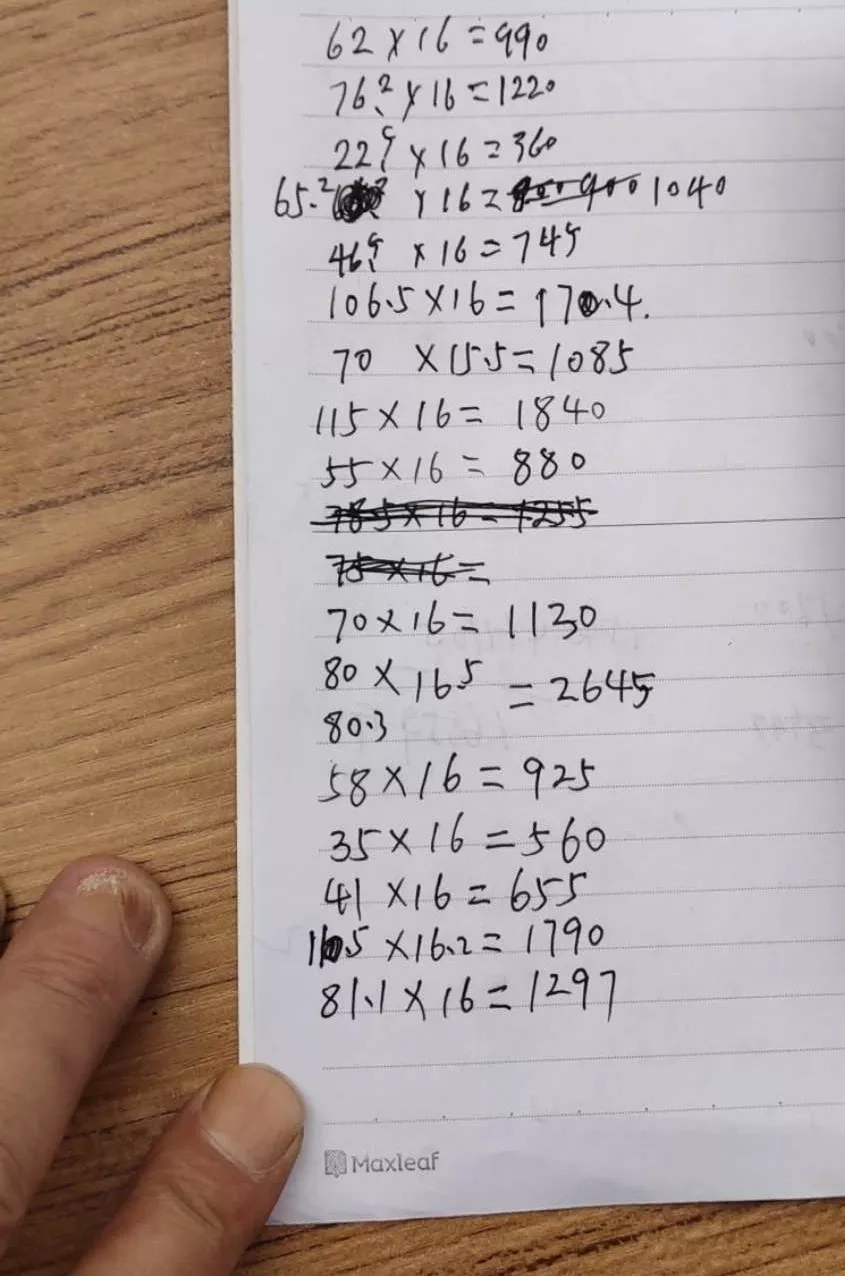 62 × 16 = 990
76.2 × 16 = 1220
22.5 × 16 = 360
65.2 × 16 = 800 900 1040
46.5 × 16 = 745
106.5 × 16 = 170.4.
70 × 15.5 = 1085
115 × 16 = 1840
55 × 16 = 880
78.5 × 16 = 1255
75 × 16 =
70 × 16 = 1130
80 × 16.5 = 2645
80.3
58 × 16 = 925
35 × 16 = 560
41 × 16 = 655
× 16.2 = 1790
81.1 × 16 = 1297
Maxleaf